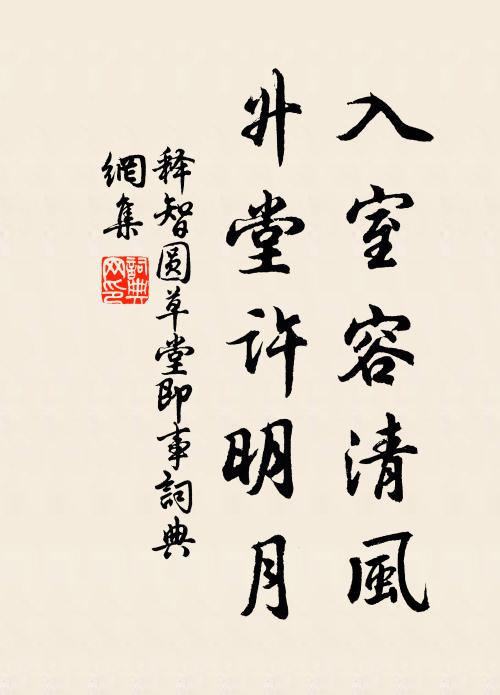 入室容清風
升堂許明月
释智圆草堂即事詞典
網集
詞典網印